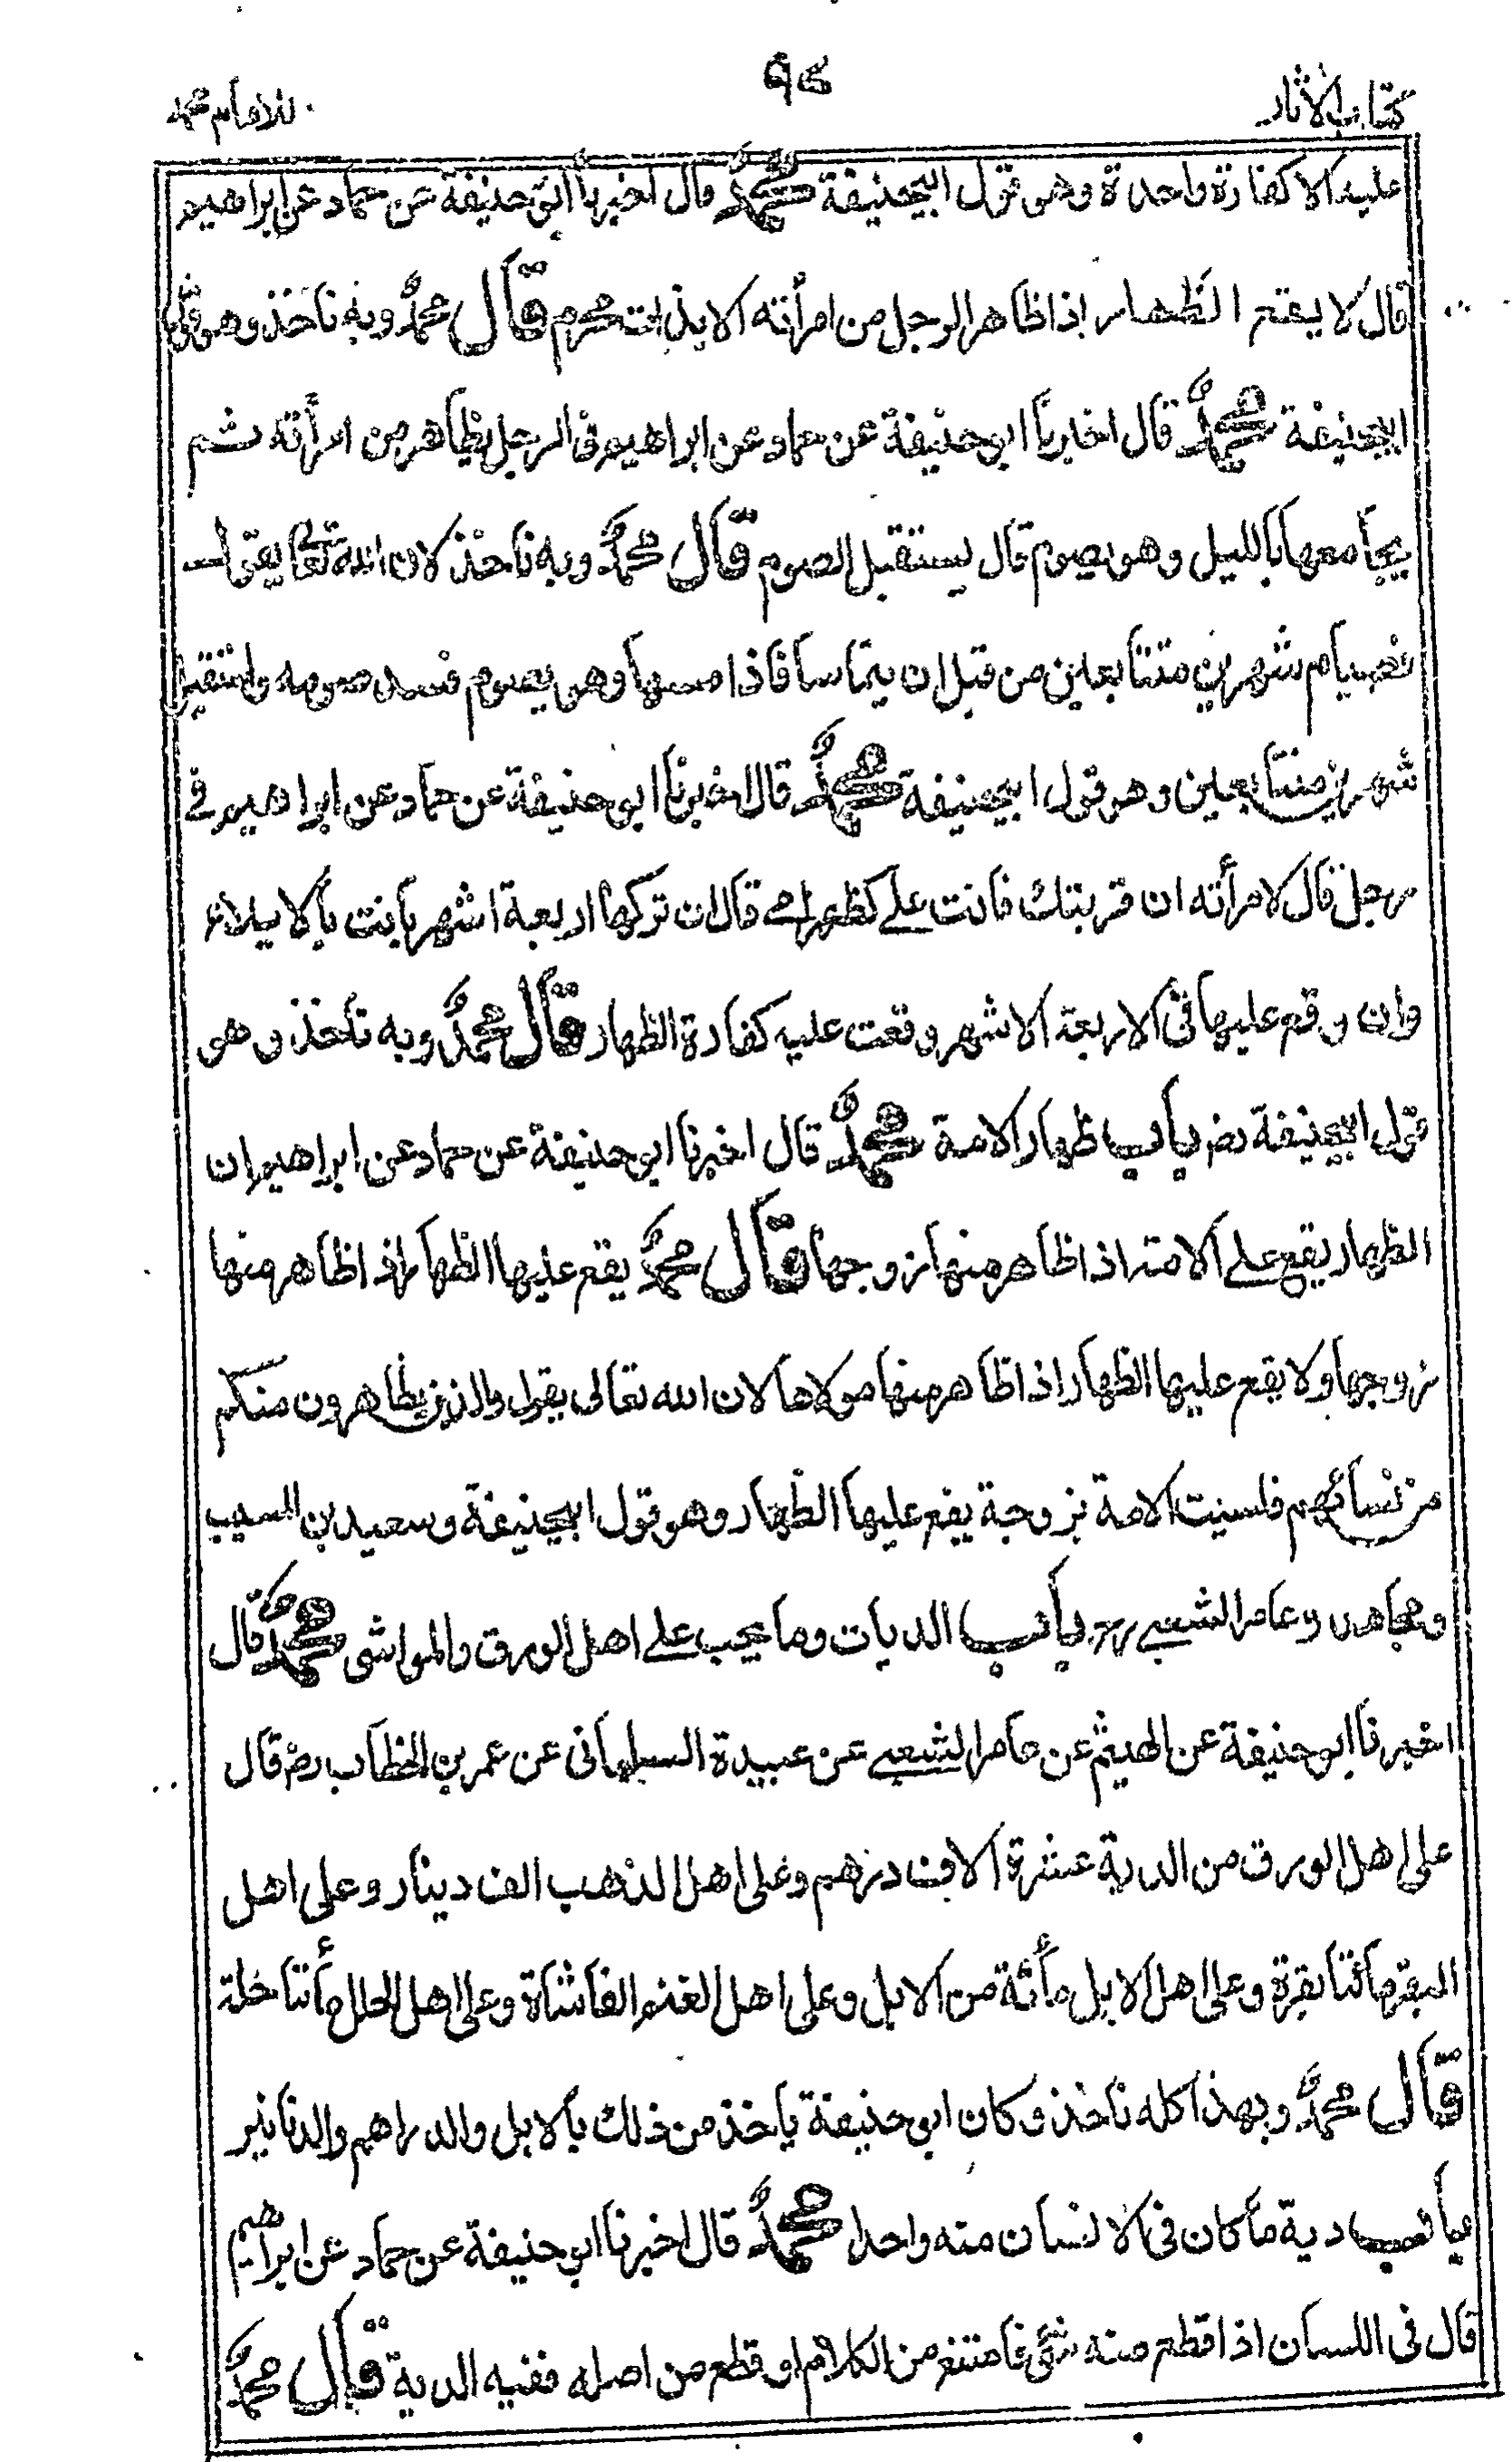 كتاب الآثار
٩٤
للامام محمد
عليه الا كفارة واحدة وهو قول ابيحنيفة محمدٌ قال اخبرنا ابو حنيفة عن حماد عن ابراهيم
قال لا يقع الظهار اذا ظاهر الرجل من امرأته الا بذات محرم قال محمدٌ وبه ناخذ وهو قول
ابيحنيفة محمدٌ قال اخبرنا ابو حنيفة عن حماد عن ابراهيم فى الرجل يظاهر من امرأته ثم
يجامعها بالليل وهو يصوم قال يستقبل الصوم قال محمدٌ وبه ناخذ لان الله تعالى يقول
فصيام شهرين متتابعين من قبل ان يتماسا فاذا مسها وهو يصوم فسد صومه واستقبل
شهرين متتابعين وهو قول ابيحنيفة محمدٌ قال اخبرنا ابو حنيفة عن حماد عن ابراهيم في
رجل قال لامرأته ان قربتك فانت علے كظهر امے قال ان تركها اربعة اشهر بانت بالايلاء
وان وقع عليها فى الاربعة الاشهر وقعت عليه كفارة الظهار قال محمدٌ وبه ناخذ وهو
قول ابيحنيفة رض باب ظهار الامة محمدٌ قال اخبرنا ابو حنيفة عن حماد عن ابراهيم ان
الظهار يقع علے الامة اذا ظاهر منها زوجها قال محمدٌ يقع عليها الظهار اذا ظاهر منها
زوجها ولا يقع عليها الظهار اذا ظاهر منها مولاها لان الله تعالى يقول والذين يظاهرون منكم
من نسائهم فليست الامة بزوجة يقع عليها الظهار وهو قول ابيحنيفة وسعيد بن المسيب
ومجاهد وعامر الشعبے رح باب الديات وما يجب علے اهل الورق والمواشى محمدٌ قال
اخبرنا ابو حنيفة عن الهيثم عن عامر الشعبے عن عبيدة السلمانى عن عمر بن الخطاب رض قال
على اهل الورق من الدية عشرة الاف درهم وعلى اهل الذهب الف دينار وعلى اهل
البقر مائتا بقرة وعلى اهل الابل مائة من الابل وعلى اهل الغنم الفا شاة وعلى اهل الحلل مأتتا حلة
قال محمدٌ وبهذا كله ناخذ وكان ابو حنيفة ياخذ من ذلك بالابل والدراهم والدنانير
باب دية ما كان فى الانسان منه واحد محمدٌ قال اخبرنا ابو حنيفة عن حماد عن ابراهيم
قال فى اللسان اذا قطع منه شئ فامتنع من الكلام او قطع من اصله ففيه الدية قال محمدٌ